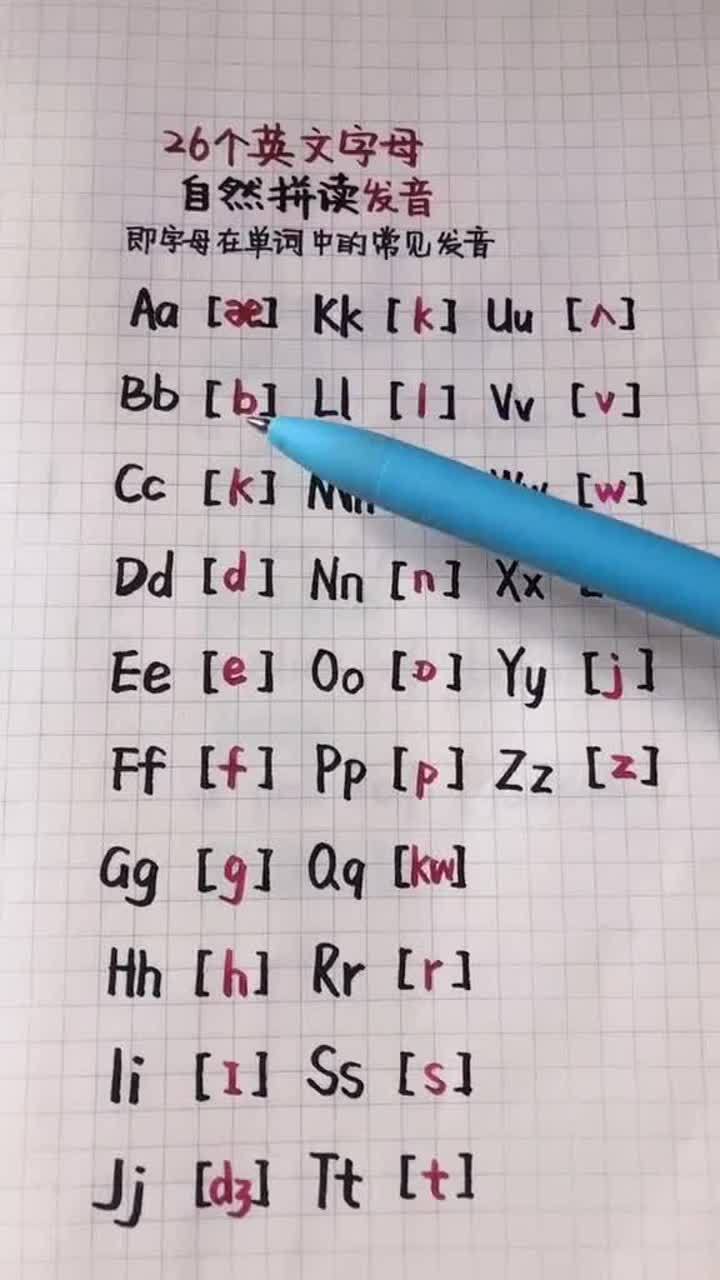 26个英文字母
自然拼读发音
即字母在单词中的常见发音
Aa [æ] Kk [k] Uu [ʌ]
Bb [b] Ll [l] Vv [v]
Cc [k] Mm Ww [w]
Dd [d] Nn [n] Xx
Ee [e] Oo [ɒ] Yy [j]
Ff [f] Pp [p] Zz [z]
Gg [g] Qq [kw]
Hh [h] Rr [r]
Ii [ɪ] Ss [s]
Jj [dʒ] Tt [t]